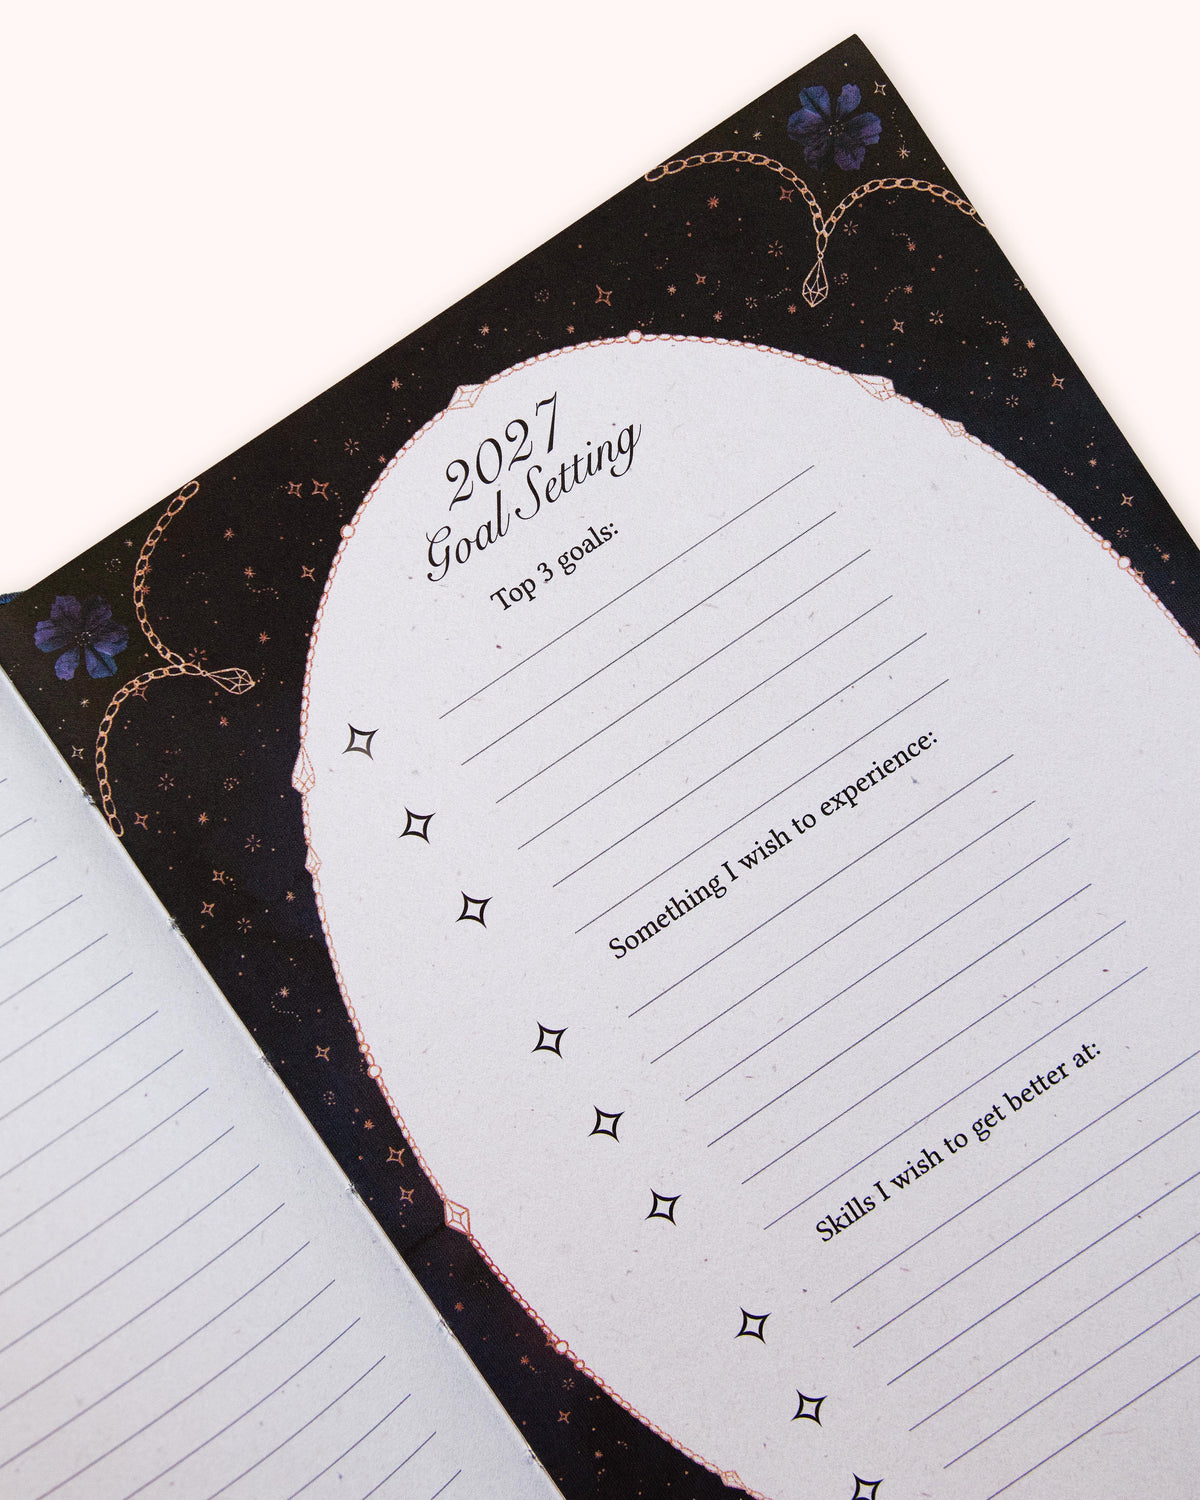 2027
Goal Setting
Top 3 goals:
Something I wish to experience:
Skills I wish to get better at: